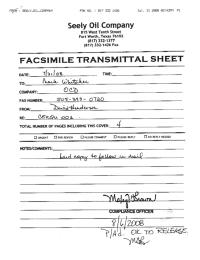 FROM : SEELY_OIL_COMPANY
FAX NO. : 817 332 1426
Jul. 31 2008
Seely Oil Company
815 West Tenth Street
Fort Worth, Texas 76102
(817) 332-1377
(817) 332-1426 Fax
FACSIMILE TRANSMITTAL SHEET
DATE: 7/31/08 TIME:
TO:
COMPANY: OCD
FAX NUMBER:
FROM: David Henderson
RE:
TOTAL NUMBER OF PAGES INCLUDING THIS COVER: 4
URGENT FOR REVIEW PLEASE COMMENT PLEASE REPLY NO REPLY NEEDED
NOTES/COMMENTS:
hard copy to follow in mail
COMPLIANCE OFFICER
8/6/2008
OK TO RELEASE